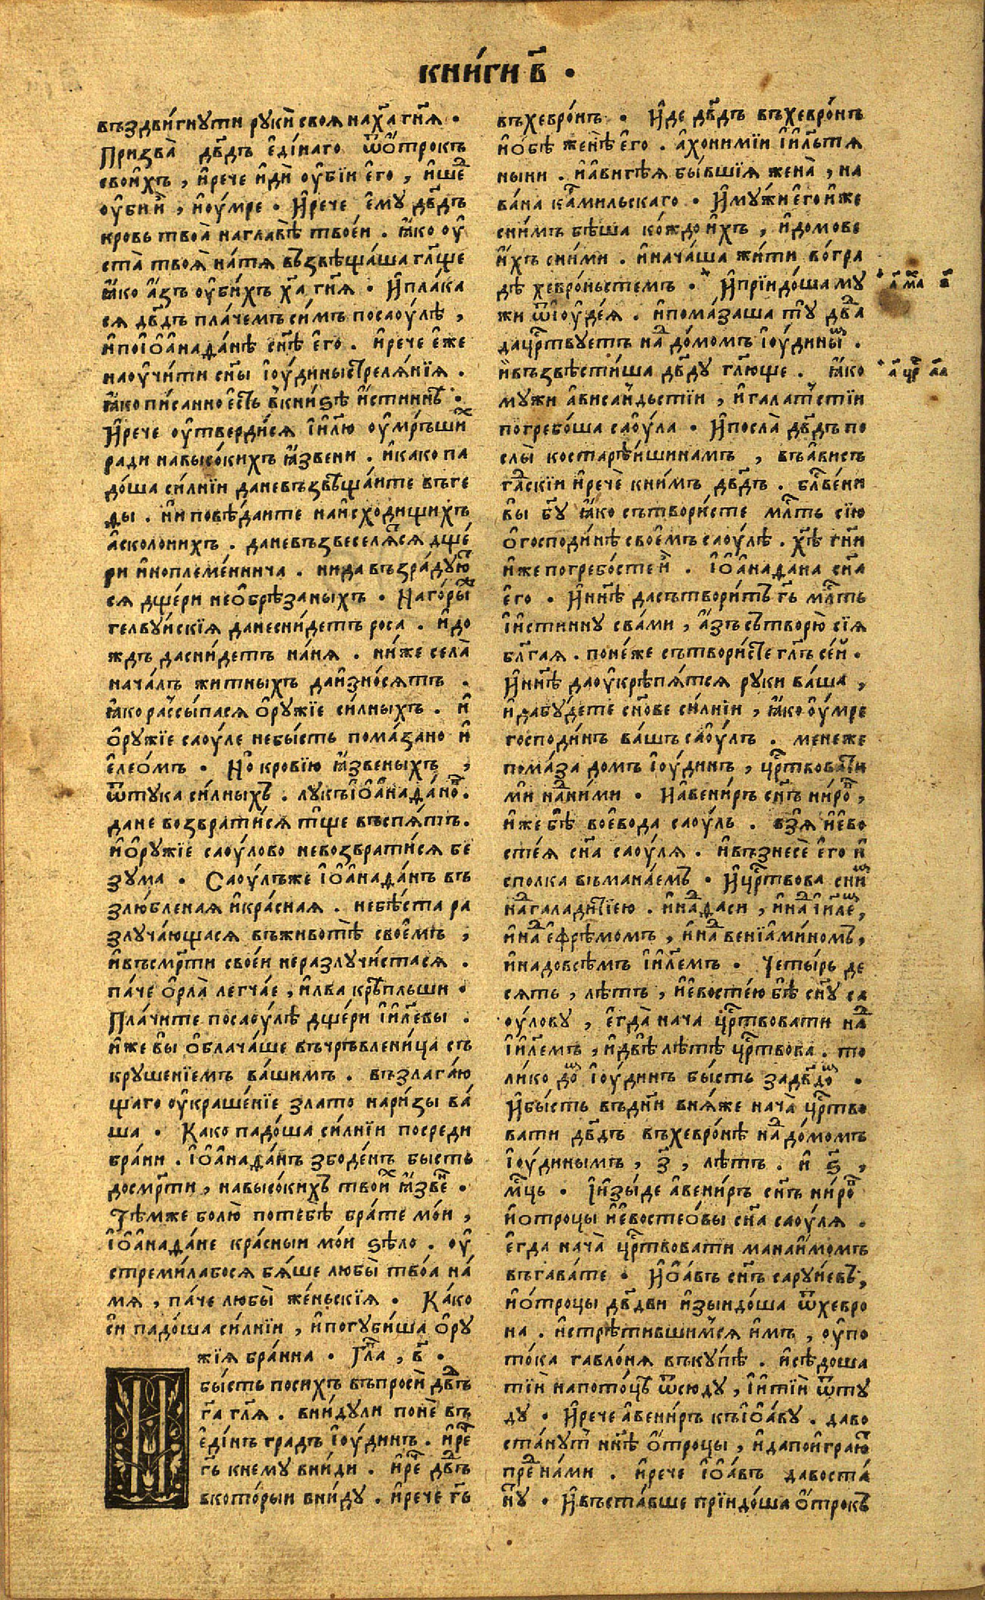 книги в҃ ·
въздвигнути руки своя на х҃а гн҃я ·
Призва дв҃дъ единаго ѿ отрокъ
своихъ , и рече иди оубіи его , ише҃
оубии , и оумре · И рече ему дв҃дъ
кровь твоа на главѣ твоеи . ꙗко оу
ста твоꙗ на тя възвѣщаша гл҃ще
ꙗко азъ оубихъ х҃а гн҃я · И плака
ся дв҃дъ плачемъ симъ по саоулѣ ,
и по іоанаѳанѣ сн҃ѣ его . и рече еже
наоучити сн҃ы іоудины стрелянія .
ꙗко писанно есть в книзѣ истиннѣ ·
И рече оутвердися іи҃лю оумръших
ради на высокихъ ꙗзвени . и како па
доша силніи да не възвѣщаите въ ге
ѳы . и и повѣдаите на исходищихъ
асколонихъ . да не възвеселятся дще
ри иноплеменнича . ни да възрадую
ся дщери необрѣзаныхъ · На горы
гелвуискія да не снидетъ роса . и до
ждь да снидетъ на ня . ниже села
началъ житныхъ да износятъ .
ꙗко разсыпася оружіе силныхъ . и
оружіе саоуле не бысть помазано и
елеомъ · Но кровію ꙗзвеныхъ ,
ѿ тука силныхъ . лукъ іоанаѳано .
да не возвратися тще въспять .
и оружіе саоулово не возвратися бе
зума · Саоулъ же іоанаѳанъ въ
злюбленая и красная . не бѣста ра
злучающася въ животѣ своемъ ,
и въ смр҃ти своеи не разлучистася .
паче орла легчае , и лва крѣпльши ·
Плачите по саоулѣ дщери іи҃левы .
иже вы облачаше въ чръвленица съ
крушеніемъ вашимъ . възлагаю
щаго оукрашеніе злато на ризы ва
ша · Како падоша силніи посреди
брани . іоанаѳанъ збоденъ бысть
до смр҃ти , на высокихъ твои ꙗзве ·
Тѣмже болю по тебѣ брате мои ,
іоанаѳане красныи мои ѕѣло . оу
стремила бося бяше любы твоа на
мя , паче любы женьскія · Како
си падоша силніи , и погубиша ору
жія бранна · Гл҃а , в҃ ·
И бысть по сихъ въпроси дв҃дъ
г҃а гл҃я . вниду ли поне въ
единъ градъ іоудинъ . и рч҃е
г҃ь к нему вниди . и рч҃е дв҃дъ
в которыи вниду . и рече г҃ь
въ хевронъ · Иде дв҃дъ въ хевронъ
и обѣ женѣ его . ахономіи іи҃лътя
ныни . и авигѣя бывшія жена , на
вана карм҃ильскаго · И мужи его иже
с нимъ бѣша кождо ихъ , и домове
ихъ с ними . и начаша жити во гра
дѣ хевроньстемъ · И пріидоша му
жи ѿ іоудея . и помазаша ту дв҃а
да цр҃ствуетъ над домомъ іоудины .
и възвѣстиша дв҃ду гл҃юще . ꙗко
мужи ависаидьстіи , и галатстіи
погребоша саоула · И посла дв҃дъ по
слы ко стареишинамъ , въ ависъ
гавскіи и рече к нимъ дв҃дъ . бл҃вени
вы бг҃у ꙗко сътвористе мл҃ть сію
о господинѣ своемъ саоулѣ . х҃ѣ гн҃и
и же погребосте и . іоанаѳана сн҃а
его · И нн҃ѣ да сътворитъ г҃ь мл҃ть
і истинну с вами , азъ сътворю сія
бл҃гая . понеже сътвористе гл҃ъ сеи .
И нн҃ѣ да оукрѣпятся руки ваша ,
и да будете сн҃ове силніи , ꙗко оумре
господинъ вашъ саоулъ . мене же
помаза домъ іоудинъ , цр҃твовати
ми над ними · И авениръ сн҃ъ ниро ,
иже бѣ воевода саоуль . взя иево
стея сн҃а саоуля . и възнесе его и
с полка въ манаемъ · И цр҃твова с ни
над галадитіею . и над аси , и над іи҃ле ,
и над ефремомъ , и над веніаминомъ ,
и надо всѣмъ іи҃лемъ · Четырь де
сять , лѣтъ , иевостею бѣ сн҃у са
оулову , егда нача цр҃твовати над
іи҃лемъ , и двѣ лѣтѣ цр҃твова . то
лико до іоудинъ бысть за дв҃до .
И бысть въ дн҃и в няже нача цр҃тво
вати дв҃дъ въ хевронѣ над домомъ
іоудинымъ , з҃ , лѣтъ . и ѕ҃ ,
мц҃ь · І изыде авениръ сн҃ъ ниро
и отроцы иевостеовы сн҃а саоуля .
егда нача цр҃твовати манаимомъ
въ гаватe · И оавъ сн҃ъ саруиевъ ,
и отроцы дв҃дви изыидоша ѿ хевро
на . и стрѣтившимся имъ , оу по
тока гавлоня въ купѣ . и сѣдоша
тіи на потоцѣ ѿсюду , і и тіи ѿту
ду · И рече авениръ къ іоаву . даво
станутъ нн҃ѣ отроцы , и да поиграю
пред нами . и рече іоавъ да воста
ну · И въставше пріидоша отрокъ